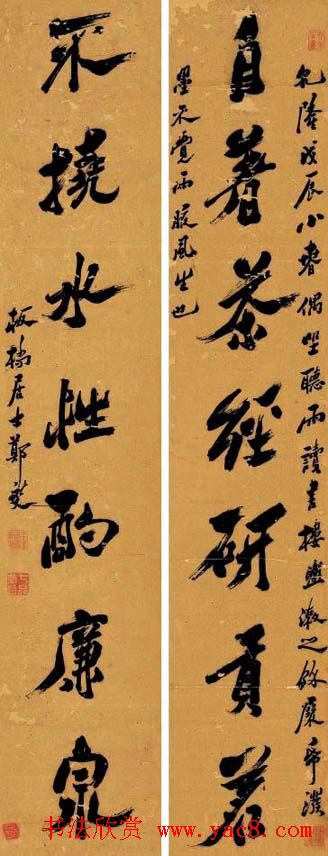 乾隆戊辰小春偶坐聽雨讀書樓盥漱之餘展帋潑
自著茶經研貢茗
墨不覺兩腋風生也
不撓水性酌廉泉
板橋居士鄭燮
书法欣赏 www.yac8.com